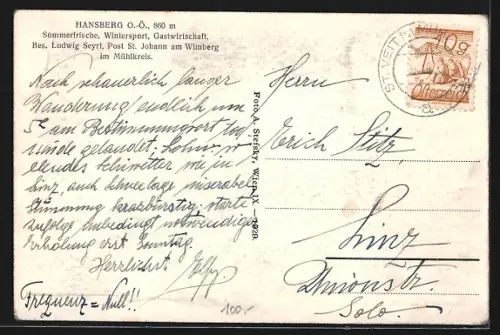 HANSBERG O.-Ö., 860 m
Sommerfrische, Wintersport, Gastwirtschaft,
Bes. Ludwig Seyrl, Post St. Johann am Wimberg
im Mühlkreis.
Noch schauerlich langer
Wanderung endlich um
5h am Bestimmungsort
gelandet.
elendes Schiwetter wie in
Linz, auch Schneelage miserabel
Stimmung
zufolge unbedingt notwendiger
Erholung erst Sonntag.
Herzlichst
Frequenz = Null!!
100.-
Foto A. Stefsky, Wien IX — 1929
ST. VEIT
40g
Österreich
Herrn
Erich Stitz,
Linz
Unionstr.